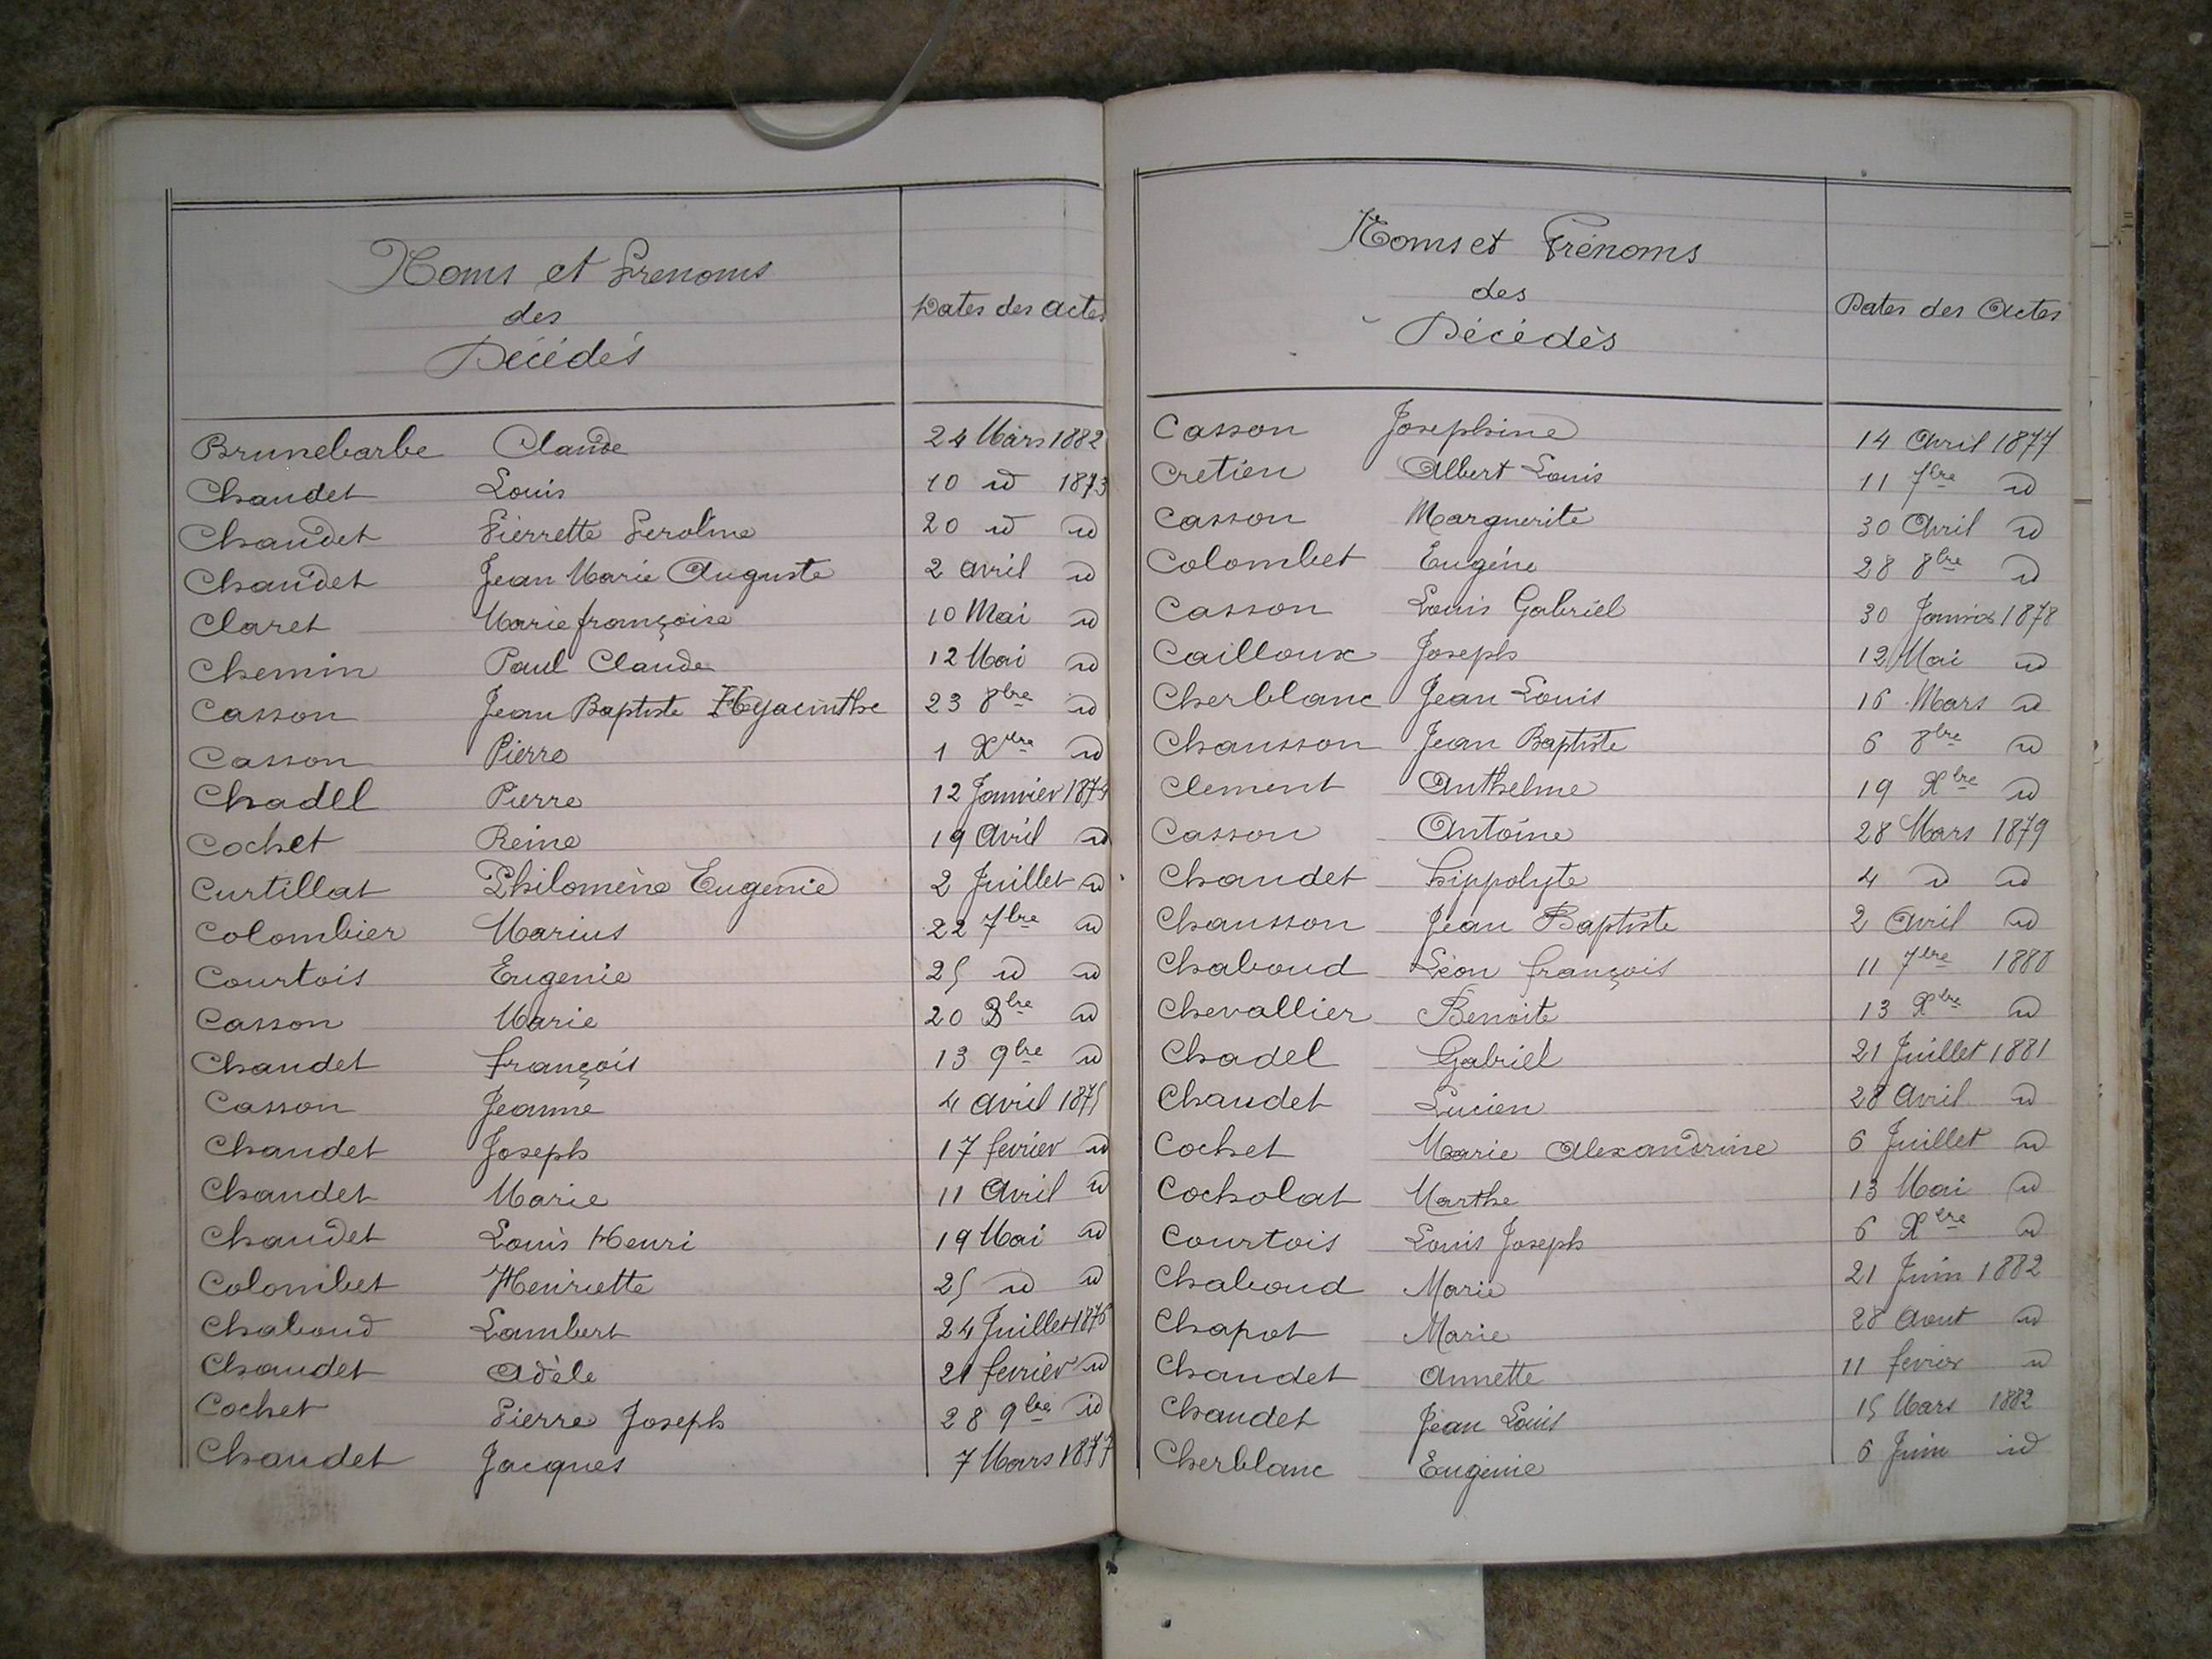 Noms et Prenoms
des
Décédés
Dates des actes
Brunebarbe Claude 24 Mars 1882
Chaudet Louis 10 id 1873
Chaudet Pierrette Peroline 20 id id
Chaudet Jean Marie Auguste 2 avril id
Claret Marie françoise 10 Mai id
Chemin Paul Claude 12 Mai id
Casson Jean Baptiste Hyacinthe 23 8bre id
Casson Pierre 1 Xbre id
Chadel Pierre 12 Janvier 1874
Cochet Reine 19 Avril id
Curtillat Philomène Eugenie 2 Juillet id
Colombier Marius 22 7bre id
Courtois Eugenie 25 id id
Casson Marie 20 8bre id
Chaudet françois 13 9bre id
Casson Jeanne 4 avril 1875
Chaudet Joseph 17 fevrier id
Chaudet Marie 11 Avril id
Chaudet Louis Henri 19 Mai id
Colombet Henriette 25 id id
Chaboud Lambert 24 Juillet 1876
Chaudet Adèle 21 fevrier id
Cochet Pierre Joseph 28 9bre id
Chaudet Jacques 7 Mars 1877
Noms et Prénoms
des
Décédès
Dates des Actes
Casson Josephine 14 Avril 1877
Cretien Albert Louis 11 7bre id
Casson Marguerite 30 Avril id
Colombet Eugène 28 8bre id
Casson Louis Gabriel 30 Janvier 1878
Cailloux Joseph 12 Mai id
Cherblanc Jean Louis 16 Mars id
Chausson Jean Baptiste 6 8bre id
Clement Anthelme 19 Xbre id
Casson Antoine 28 Mars 1879
Chaudet hippolyte 4 id id
Chausson Jean Baptiste 2 Avril id
Chaboud Léon françois 11 7bre 1880
Chevallier Benoite 13 Xbre id
Chadel Gabriel 21 Juillet 1881
Chaudet Lucien 28 Avril id
Cochet Marie Alexandrine 6 Juillet id
Cocholat Marthe 13 Mai id
Courtois Louis Joseph 6 Xbre id
Chaboud Marie 21 Juin 1882
Chapot Marie 28 Aout id
Chaudet Annette 11 fevrier id
Chaudet Jean Louis 15 Mars 1882
Cherblanc Eugénie 6 Juin id